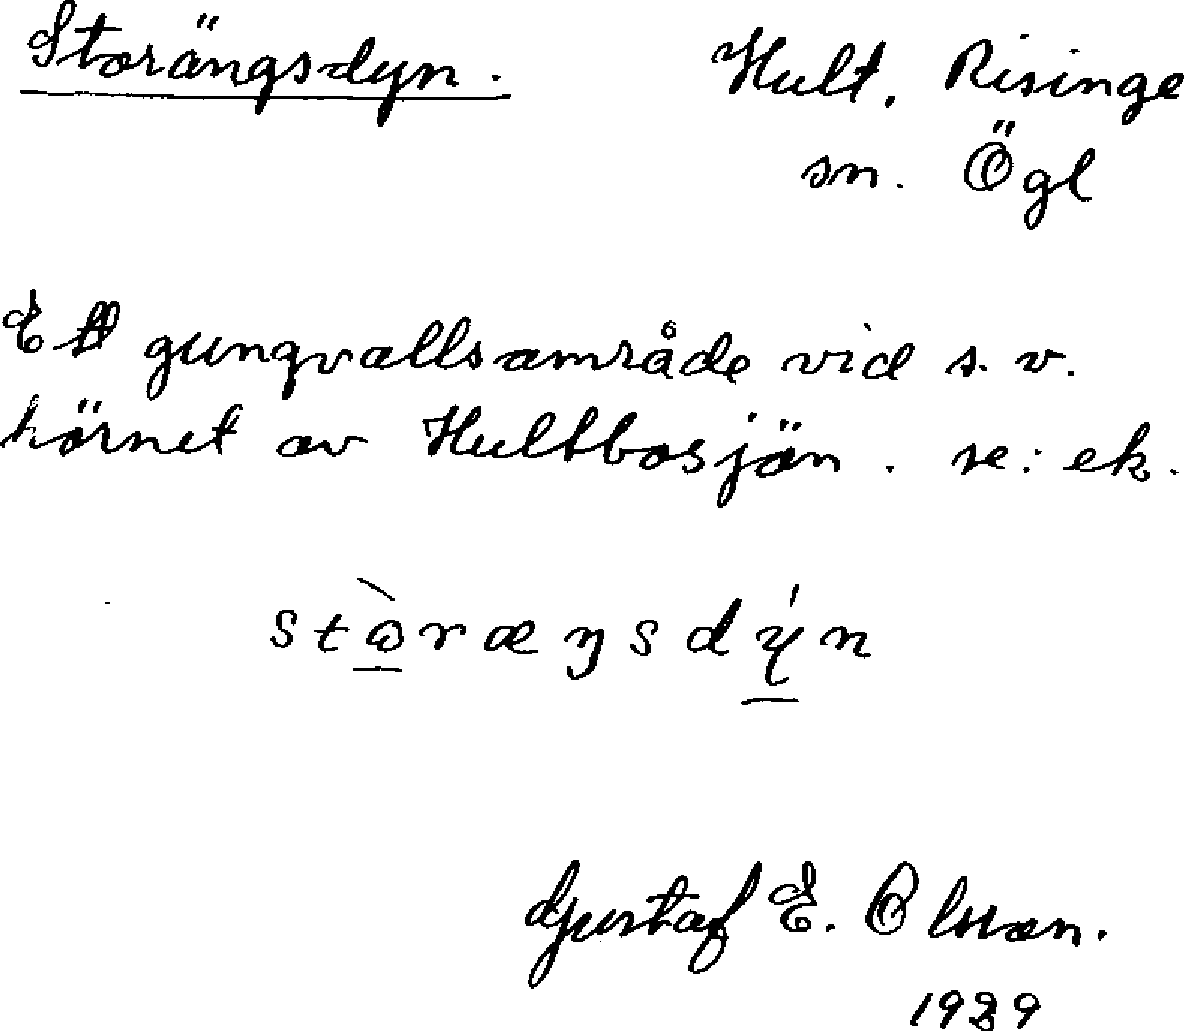 Storängsdyn.
Hult, Risinge
sn. Ögl
Ett gungvallsområde vid s. v.
hörnet av Hultbosjön. se: ek.
stòræŋsdýn
Gustaf E. Olsson.
1929